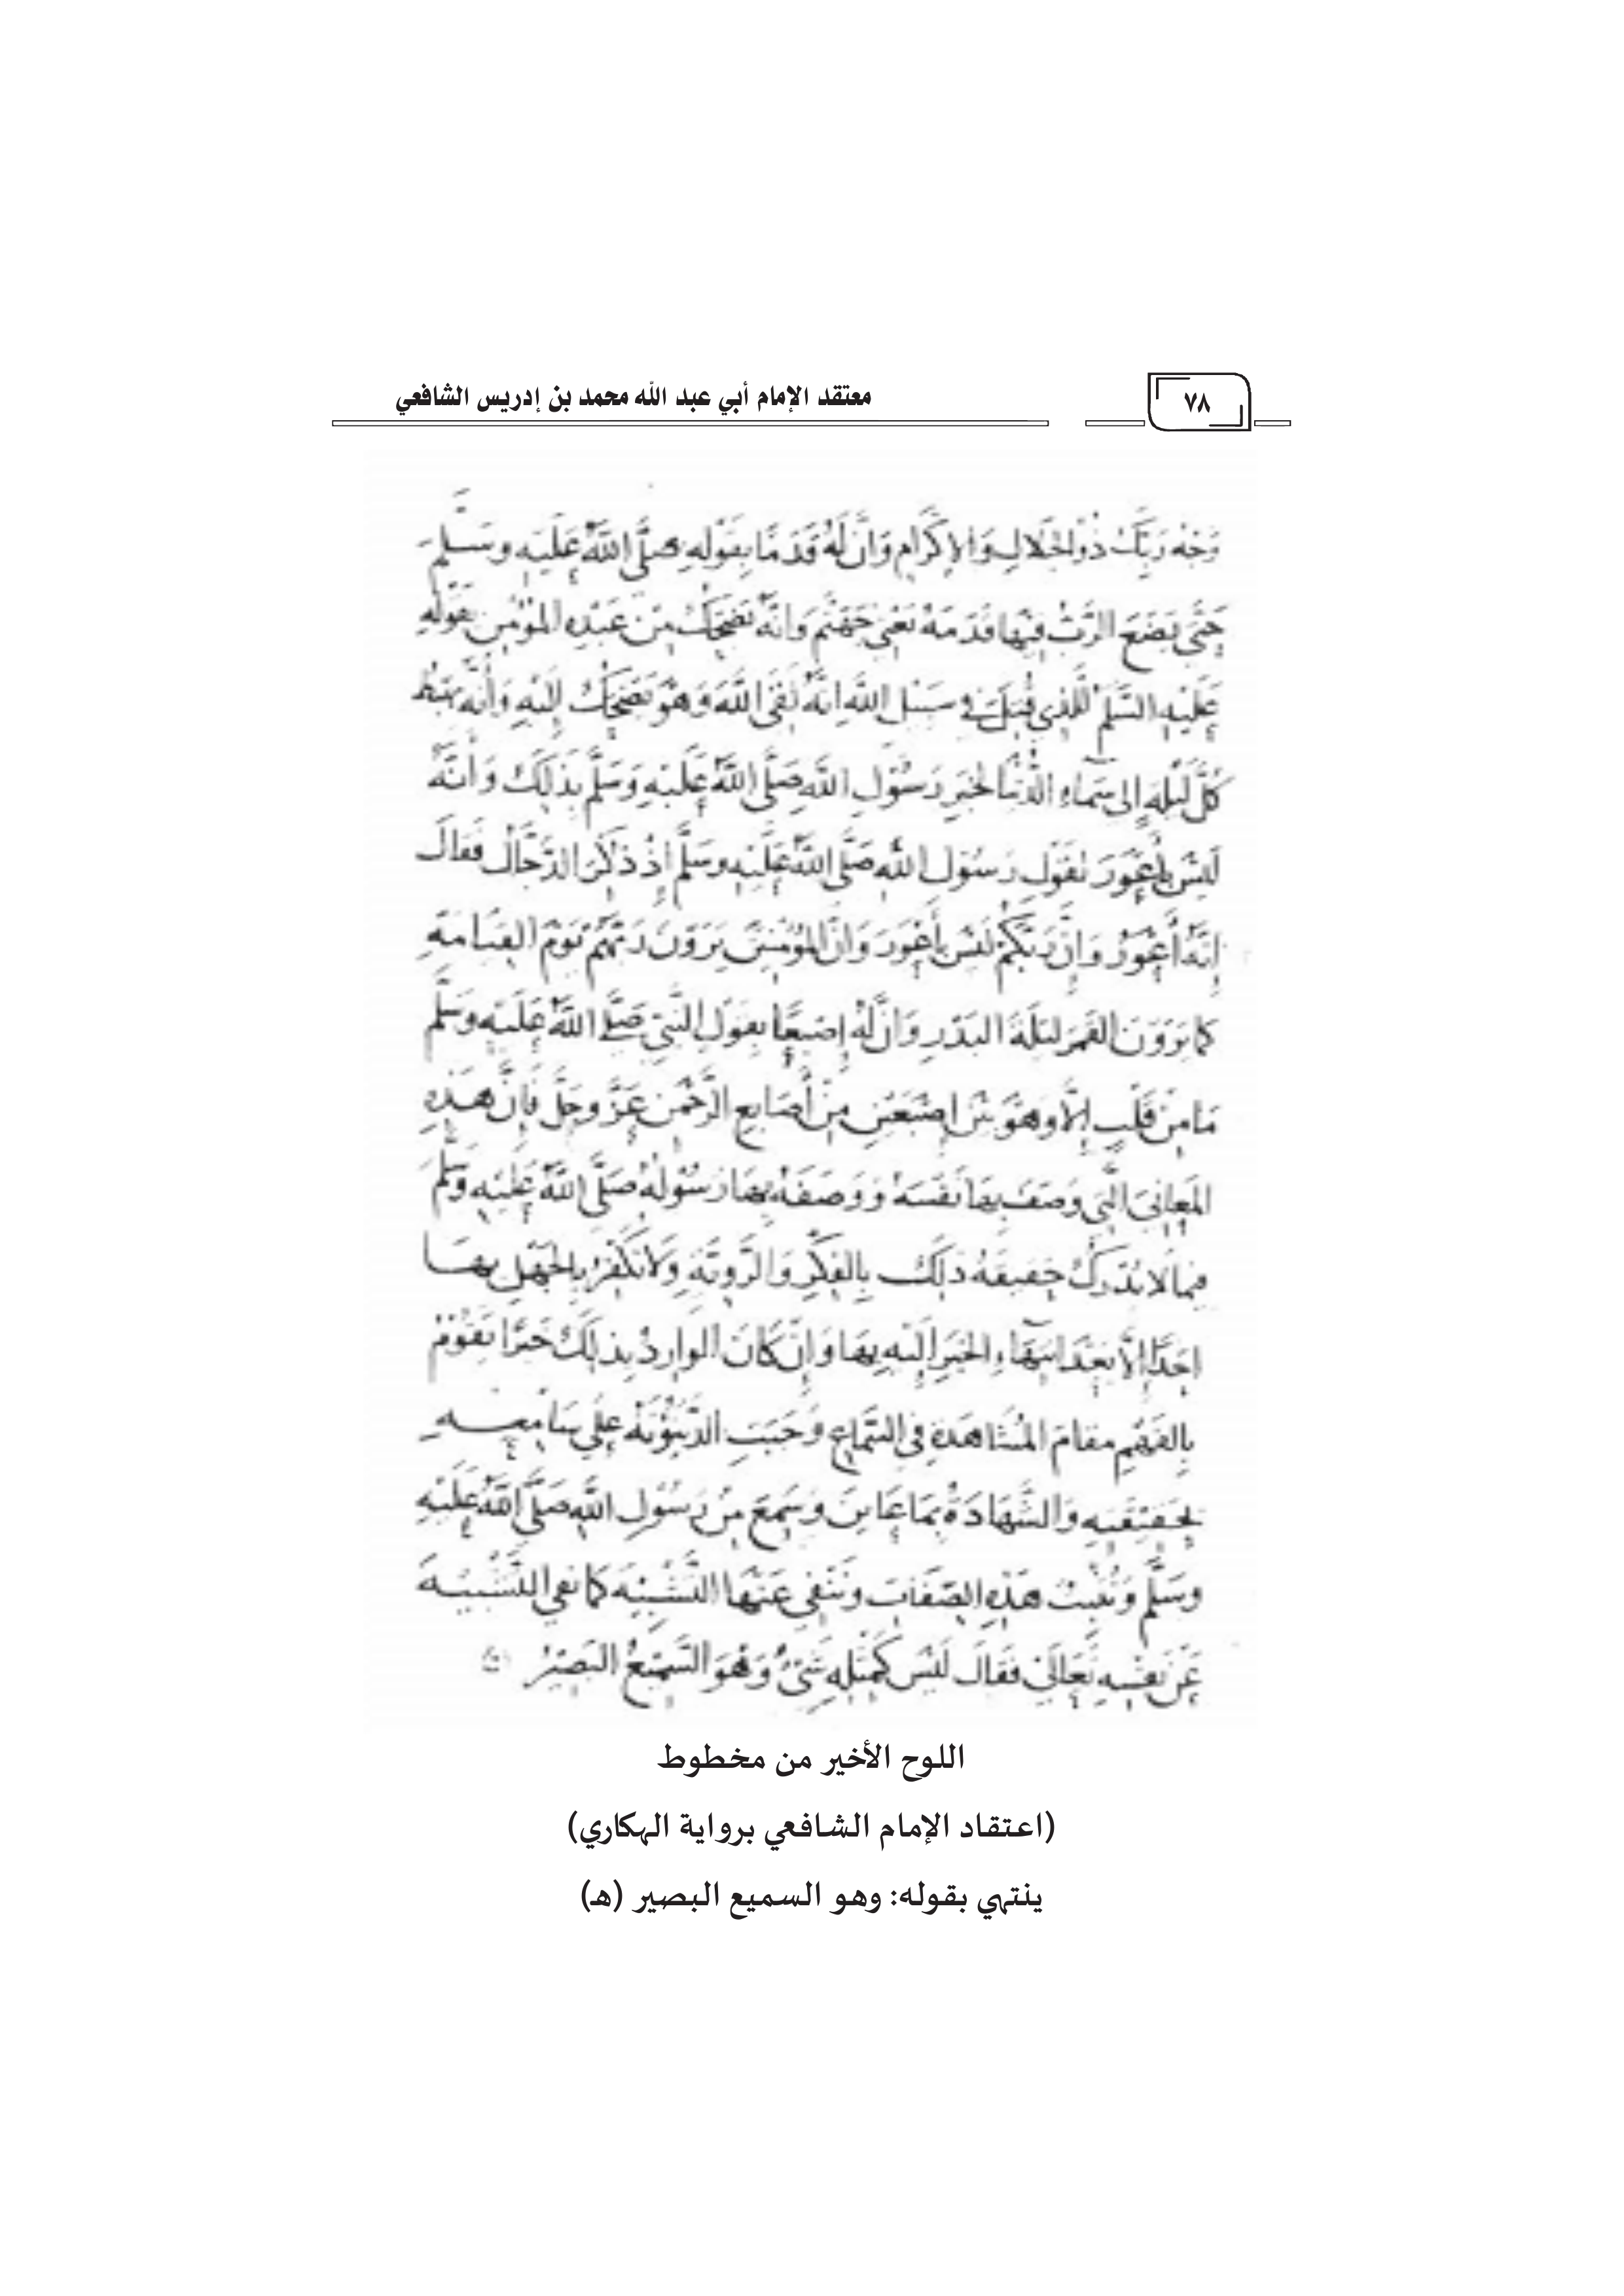 ٧٨
معتقد الإمام أبي عبد الله محمد بن إدريس الشافعي
وَجْهُ رَبِّكَ ذُو الجَلَالِ وَالإِكْرَامِ وَأَنَّ لَهُ قَدَمًا بِقَوْلِهِ صَلَّى اللَّهُ عَلَيْهِ وَسَلَّمَ
حَتَّى يَضَعَ الرَّبُّ فِيهَا قَدَمَهُ يَعْنِي جَهَنَّمَ وَأَنَّهُ يَضْحَكُ مِنْ عَبْدِهِ المُؤْمِنِ بِقَوْلِهِ
عَلَيْهِ السَّلَمُ لِلَّذِي قُتِلَ فِي سَبِيلِ اللَّهِ إِنَّهُ لَقِيَ اللَّهَ وَهُوَ يَضْحَكُ إِلَيْهِ وَأَنَّهُ يَهْبِطُ
كُلَّ لَيْلَةٍ إِلَى سَمَاءِ الدُّنْيَا لِخَبَرِ رَسُولِ اللَّهِ صَلَّى اللَّهُ عَلَيْهِ وَسَلَّمَ بِذَلِكَ وَأَنَّهُ
لَيْسَ بِأَعْوَرَ بِقَوْلِ رَسُولِ اللَّهِ صَلَّى اللَّهُ عَلَيْهِ وَسَلَّمَ إِذْ ذَكَرَ الدَّجَّالَ فَقَالَ
إِنَّهُ أَعْوَرُ وَإِنَّ رَبَّكُمْ لَيْسَ بِأَعْوَرَ وَأَنَّ المُؤْمِنِينَ يَرَوْنَ رَبَّهُمْ يَوْمَ القِيَامَةِ
كَمَا يَرَوْنَ القَمَرَ لَيْلَةَ البَدْرِ وَأَنَّ لَهُ إِصْبَعًا بِقَوْلِ النَّبِيِّ صَلَّى اللَّهُ عَلَيْهِ وَسَلَّمَ
مَا مِنْ قَلْبٍ إِلَّا وَهُوَ بَيْنَ إِصْبَعَيْنِ مِنْ أَصَابِعِ الرَّحْمَنِ عَزَّ وَجَلَّ فَإِنَّ هَذِهِ
المَعَانِيَ الَّتِي وَصَفَ بِهَا نَفْسَهُ وَوَصَفَهُ بِهَا رَسُولُهُ صَلَّى اللَّهُ عَلَيْهِ وَسَلَّمَ
مِمَّا لَا يُدْرَكُ حَقِيقَةُ ذَلِكَ بِالفِكْرِ وَالرَّوِيَّةِ وَلَا نُكَفِّرُ بِالجَهْلِ بِهَا
أَحَدًا إِلَّا بَعْدَ انْتِهَاءِ الخَبَرِ إِلَيْهِ بِهَا وَإِنْ كَانَ الوَارِدُ بِذَلِكَ خَبَرًا يَقُومُ
بِالفَهْمِ مَقَامَ المُشَاهَدَةِ فِي السَّمَاعِ وَجَبَتِ الدَّيْنُونَةُ عَلَى سَامِعِهِ
بِحَقِيقَتِهِ وَالشَّهَادَةُ بِمَا عَايَنَ وَسَمِعَ مِنْ رَسُولِ اللَّهِ صَلَّى اللَّهُ عَلَيْهِ
وَسَلَّمَ وَنُثْبِتُ هَذِهِ الصِّفَاتِ وَنَنْفِي عَنْهَا التَّشْبِيهَ كَمَا نَفَى التَّشْبِيهَ
عَنْ نَفْسِهِ تَعَالَى فَقَالَ لَيْسَ كَمِثْلِهِ شَيْءٌ وَهُوَ السَّمِيعُ البَصِيرُ
اللوح الأخير من مخطوط
(اعتقاد الإمام الشافعي برواية الهكاري)
ينتهي بقوله: وهو السميع البصير (هـ)